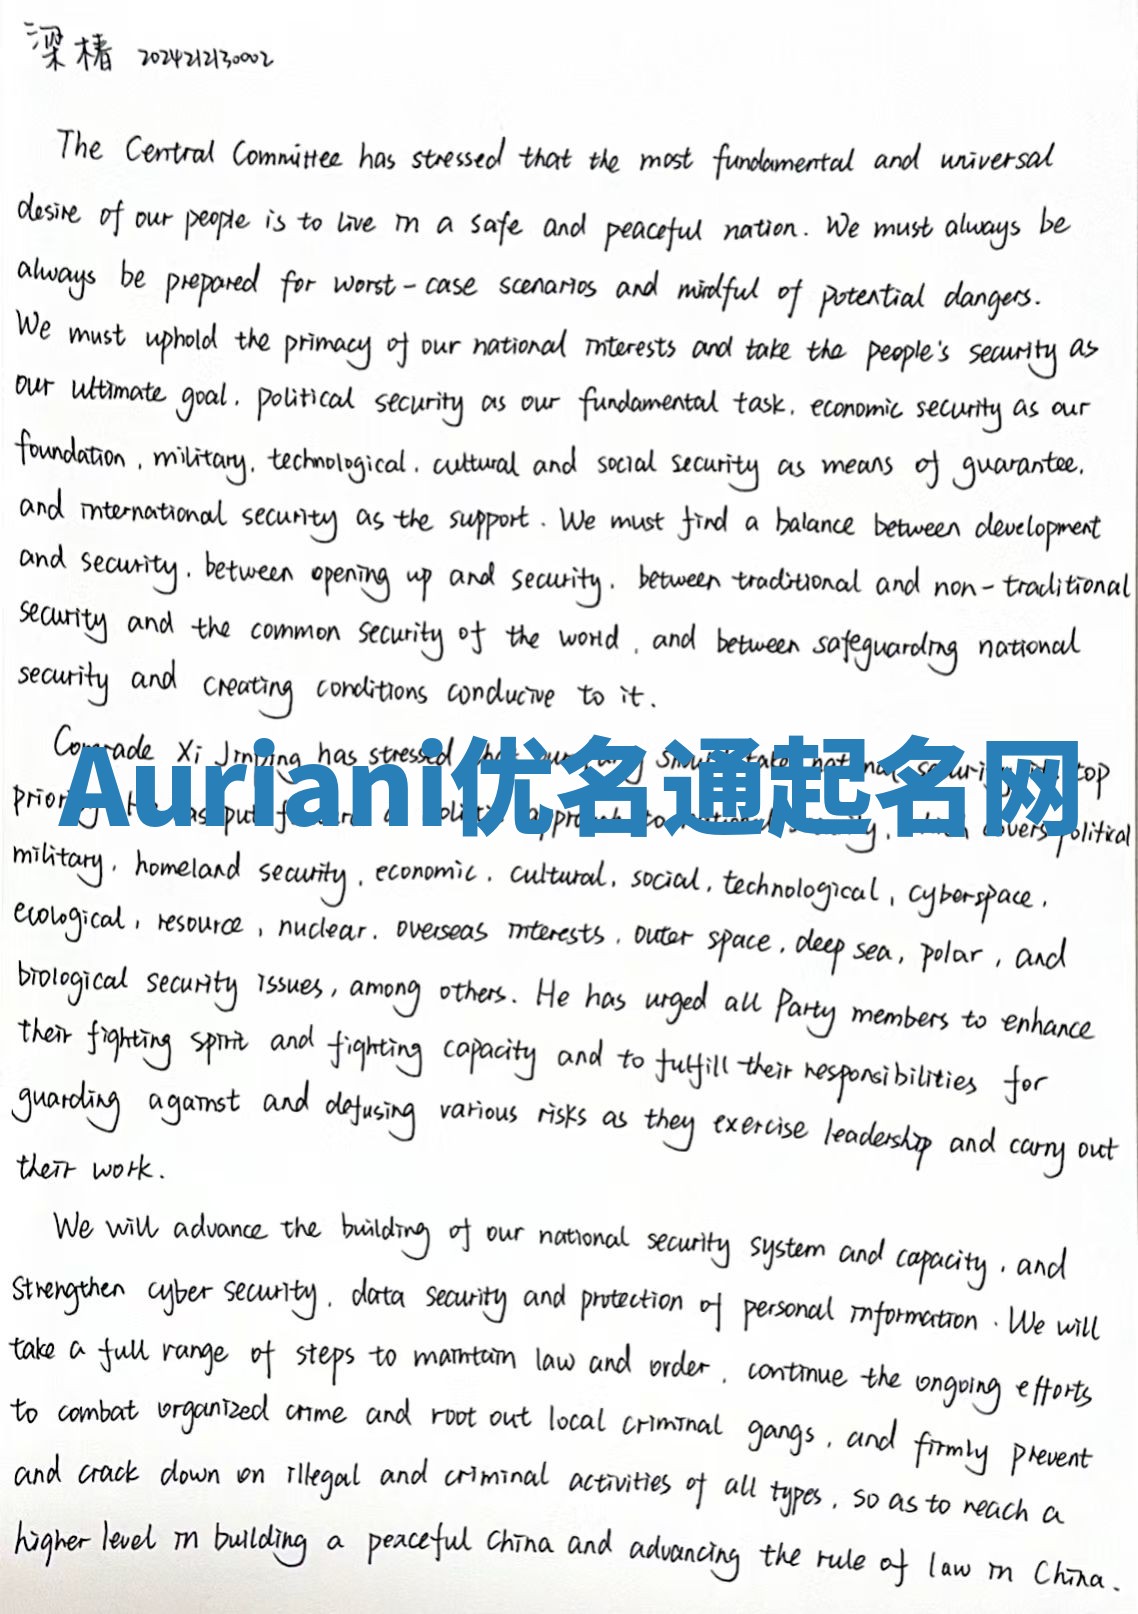 梁椿 2024212130002
The Central Committee has stressed that the most fundamental and universal
desire of our people is to live in a safe and peaceful nation. We must always be
always be prepared for worst-case scenarios and mindful of potential dangers.
We must uphold the primacy of our national interests and take the people's security as
our ultimate goal, political security as our fundamental task, economic security as our
foundation, military, technological, cultural and social security as means of guarantee,
and international security as the support. We must find a balance between development
and security, between opening up and security, between traditional and non-traditional
security and the common security of the world, and between safeguarding national
security and creating conditions conducive to it.
Comrade Xi Jinping has stressed take national security top
Auriani优名通起名网
put covers political
military, homeland security, economic, cultural, social, technological, cyberspace,
ecological, resource, nuclear, overseas interests, outer space, deep sea, polar, and
biological security issues, among others. He has urged all Party members to enhance
their fighting spirit and fighting capacity and to fulfill their responsibilities for
guarding against and defusing various risks as they exercise leadership and carry out
their work.
We will advance the building of our national security system and capacity, and
strengthen cyber security, data security and protection of personal information. We will
take a full range of steps to maintain law and order, continue the ongoing efforts
to combat organized crime and root out local criminal gangs, and firmly prevent
and crack down on illegal and criminal activities of all types, so as to reach a
higher level in building a peaceful China and advancing the rule of law in China.